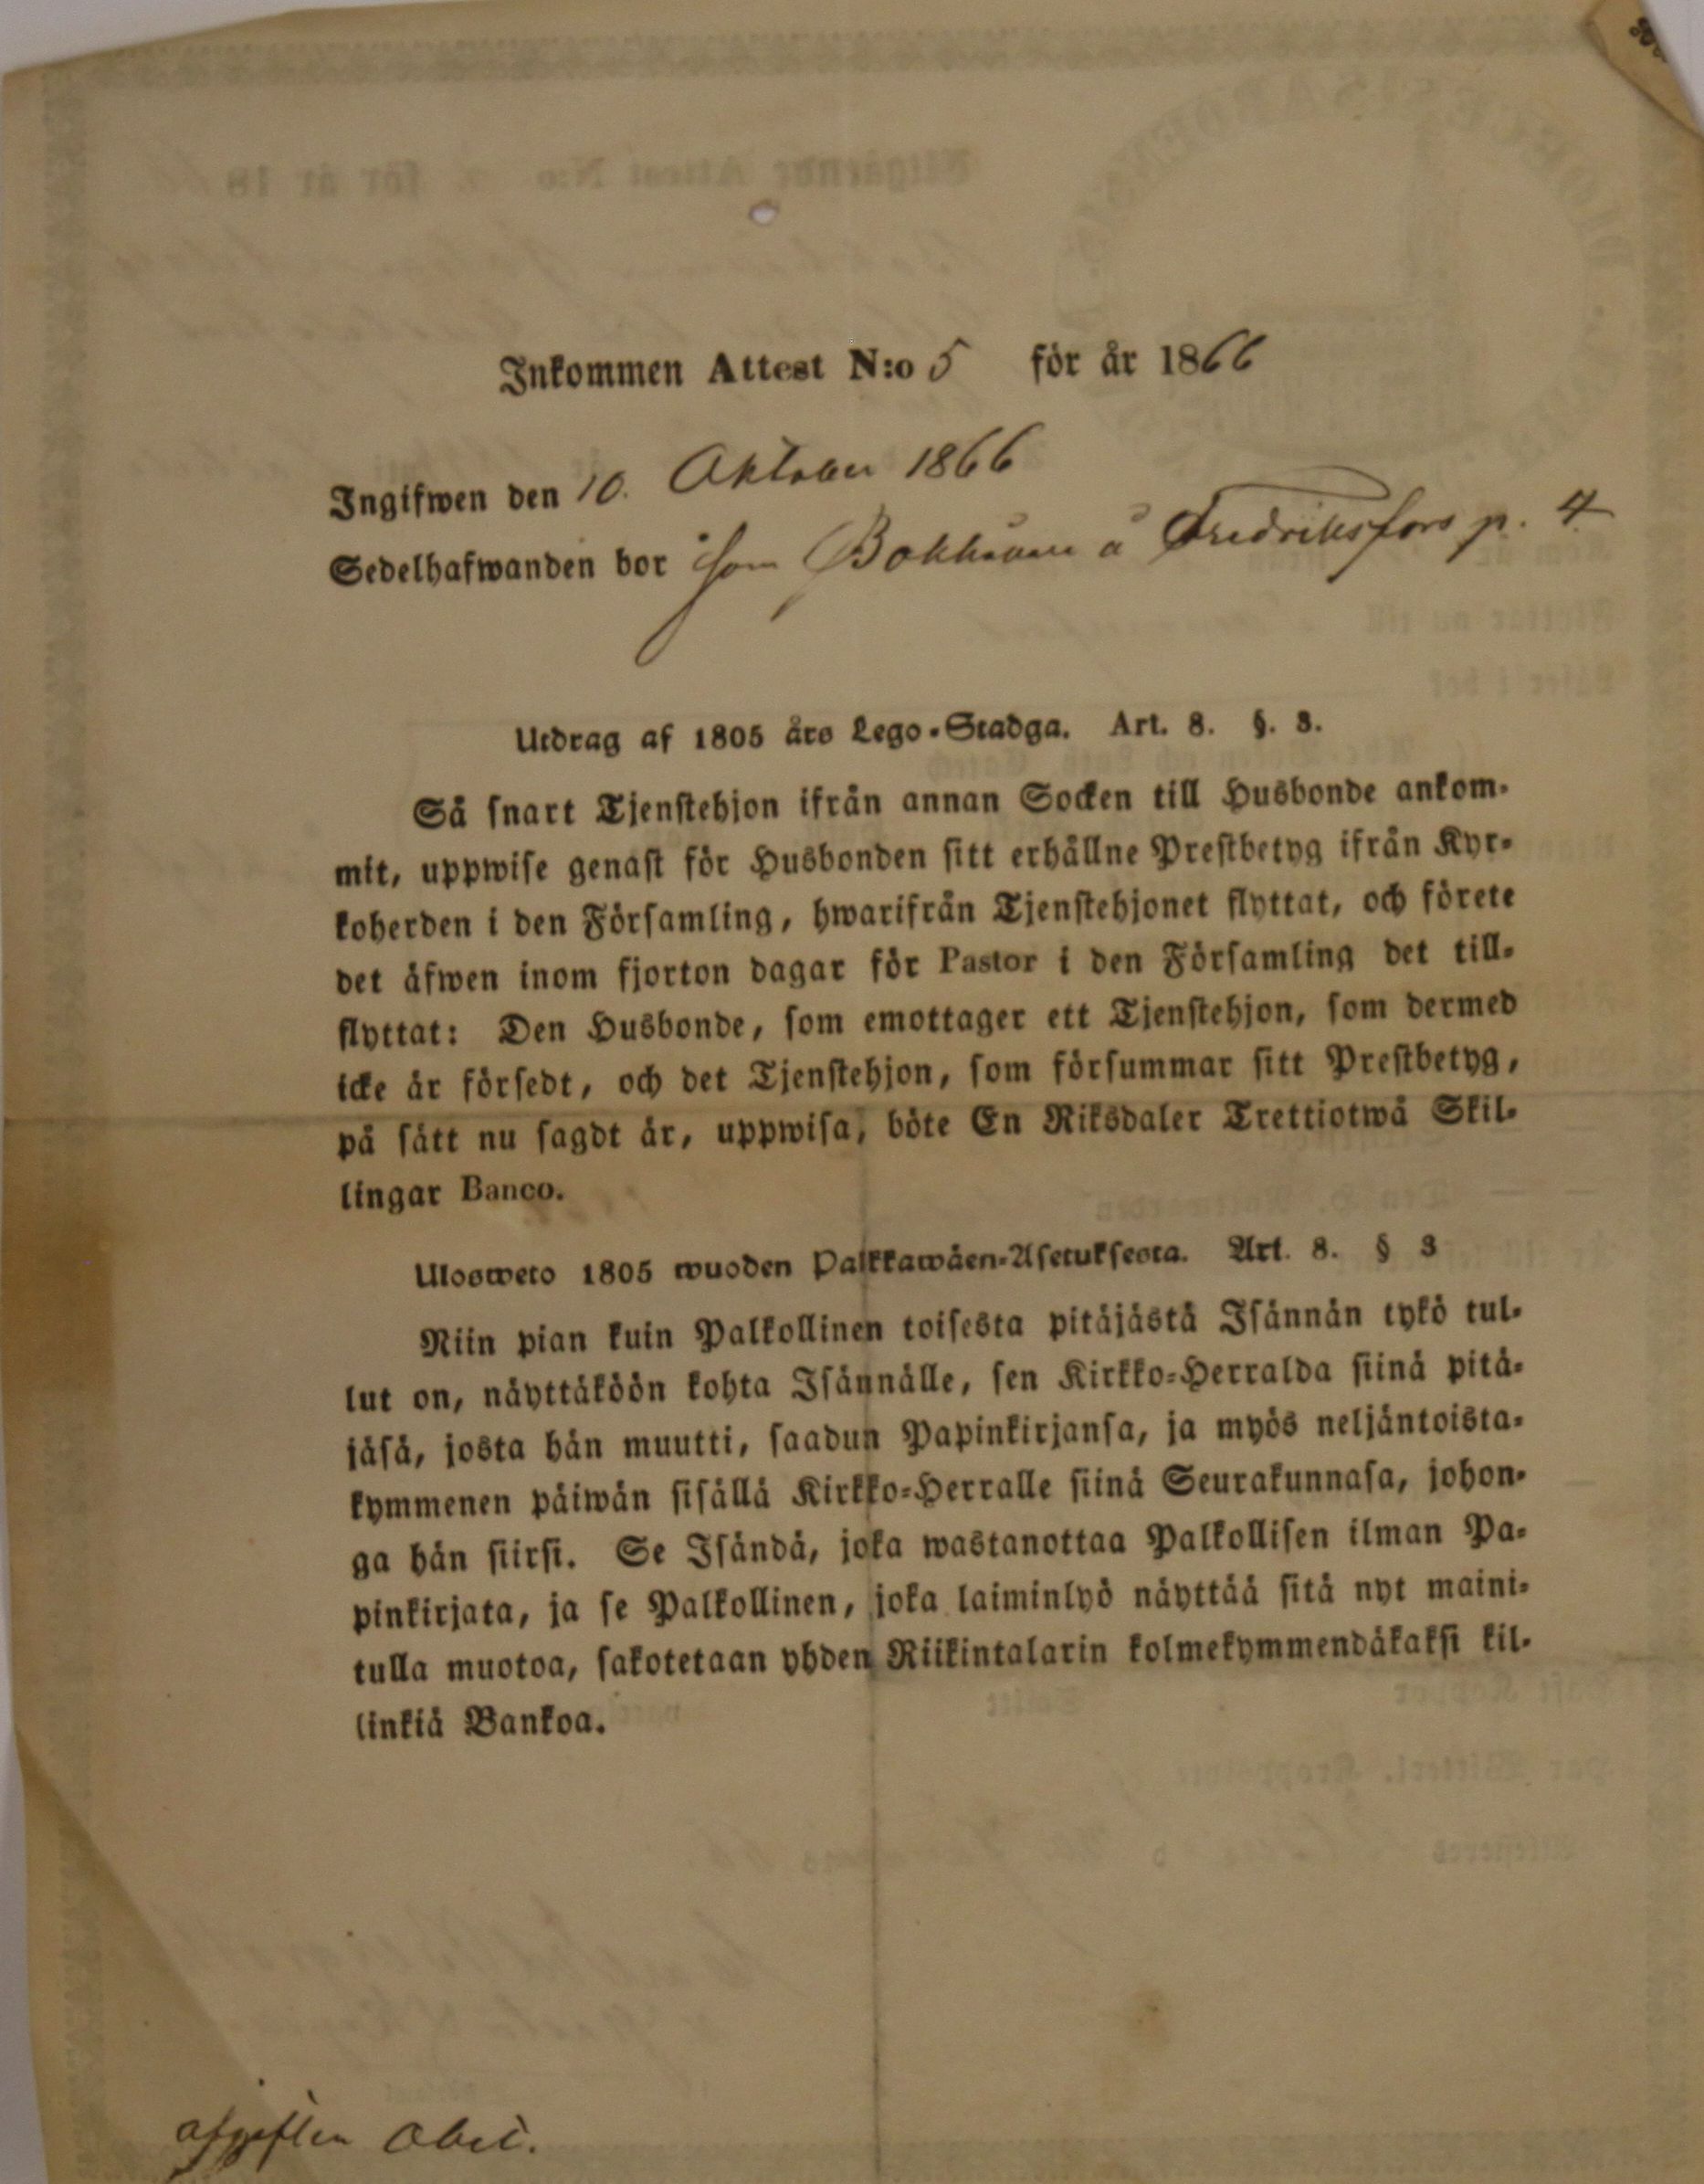 Inkommen Attest N:o 5 för år 1866
Ingifwen den 10. Oktober 1866
Sedelhafwanden bor som Bokhållare å Fredriksfors p. 4
Utdrag af 1805 års Lego-Stadga. Art. 8. §. 3.
Så snart Tjenstehjon ifrån annan Socken till Husbonde ankom-
mit, uppwise genast för Husbonden sitt erhållne Prestbetyg ifrån Kyr-
koherden i den Församling, hwarifrån Tjenstehjonet flyttat, och förete
det äfwen inom fjorton dagar för Pastor i den Församling det till-
flyttat: Den Husbonde, som emottager ett Tjenstehjon, som dermed
icke är försedt, och det Tjenstehjon, som försummar sitt Prestbetyg,
på sätt nu sagdt är, uppwisa, böte En Riksdaler Trettiotwå Skil-
lingar Banco.
Ulosweto 1805 wuoden Palkkawäen-Asetuksesta. Art. 8. § 3
Niin pian kuin Palkollinen toisesta pitäjästä Isännän tykö tul-
lut on, näyttäköön kohta Isännälle, sen Kirkko-Herralda siinä pitä-
jäsä, josta hän muutti, saadun Papinkirjansa, ja myös neljäntoista-
kymmenen päiwän sisällä Kirkko-Herralle siinä Seurakunnasa, johon-
ga hän siirsi. Se Isändä, joka wastanottaa Palkollisen ilman Pa-
pinkirjata, ja se Palkollinen, joka laiminlyö näyttää sitä nyt maini-
tulla muotoa, sakotetaan yhden Riikintalarin kolmekymmendäkaksi kil-
linkiä Bankoa.
afgiften